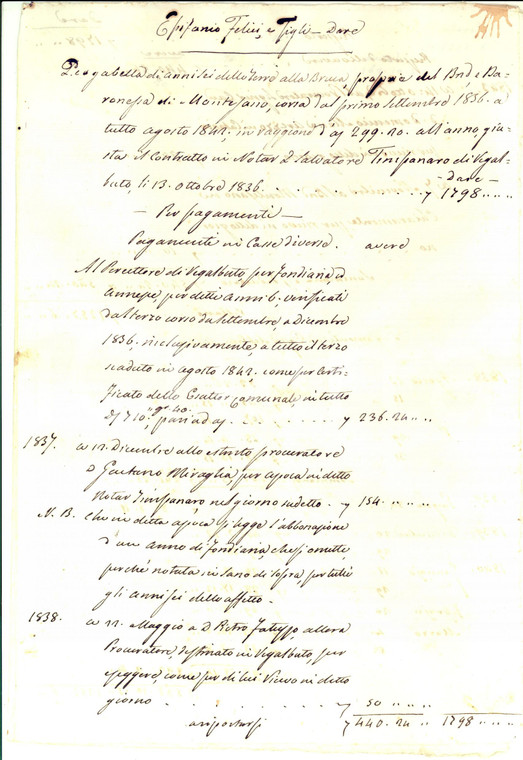 Epifanio Felici, e Figli — Dare
Per gabella di anni sei dello Ferro alla Bruca, proprie del Bnē e Ba-
ronessa di Montefano, corsa dal primo settembre 1836. a
tutto agosto 1842. in raggione d'oz 299.20. all'anno, giu-
sta il Contratto in Notar D. Salvatore Timpanaro di Regal-
buto, li 13. ottobre 1836.
— Dare —
1798
— Per pagamenti —
Pagamenti in Casse diverse. avere
Al Percettore di Regalbuto, per fondiaria, ed
annesse, per detti anni 6. verificati
dal terzo corso da settembre, a Dicembre
1836. inclusivamente, a tutto il terzo
scaduto in agosto 1842. come per Certi-
ficato dello Esattor Comunale, in tutto
710. gr. 40. pari ad oz 236.24
1837. a 12. Dicembre allo estinto procuratore
D. Gaetano Miraglia, per apoca in detto
Notar Timpanaro nel giorno sudetto. 154.
N. B. che in detta apoca si legge l'abbonazione
d'un anno di fondiaria, che si omette,
perché notata in sano di sopra, per tutti
gli anni sei dello affitto.
1838. a 12. Maggio a D. Pietro allora
Procuratore destinato in Regalbuto, per
come per di lui Ricevo in detto
giorno 50
a riportarsi 440.24 1798